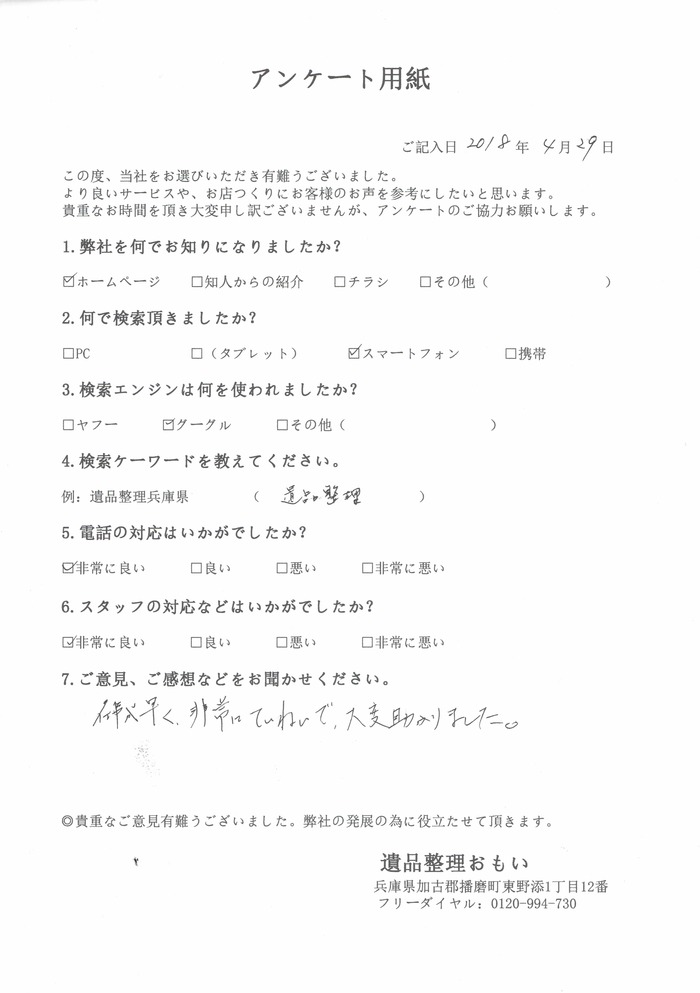 アンケート用紙
ご記入日 2018 年 4月29日
この度、当社をお選びいただき有難うございました。
より良いサービスや、お店つくりにお客様のお声を参考にしたいと思います。
貴重なお時間を頂き大変申し訳ございませんが、アンケートのご協力お願いします。
1.弊社を何でお知りになりましたか?
☑ホームページ □知人からの紹介 □チラシ □その他( )
2.何で検索頂きましたか?
□PC □(タブレット) ☑スマートフォン □携帯
3.検索エンジンは何を使われましたか?
□ヤフー ☑グーグル □その他( )
4.検索ケーワードを教えてください。
例: 遺品整理兵庫県 ( 遺品整理 )
5.電話の対応はいかがでしたか?
☑非常に良い □良い □悪い □非常に悪い
6.スタッフの対応などはいかがでしたか?
☑非常に良い □良い □悪い □非常に悪い
7.ご意見、ご感想などをお聞かせください。
早く、非常にていねいで、大変助かりました。
◎貴重なご意見有難うございました。弊社の発展の為に役立たせて頂きます。
遺品整理おもい
兵庫県加古郡播磨町東野添1丁目12番
フリーダイヤル: 0120-994-730